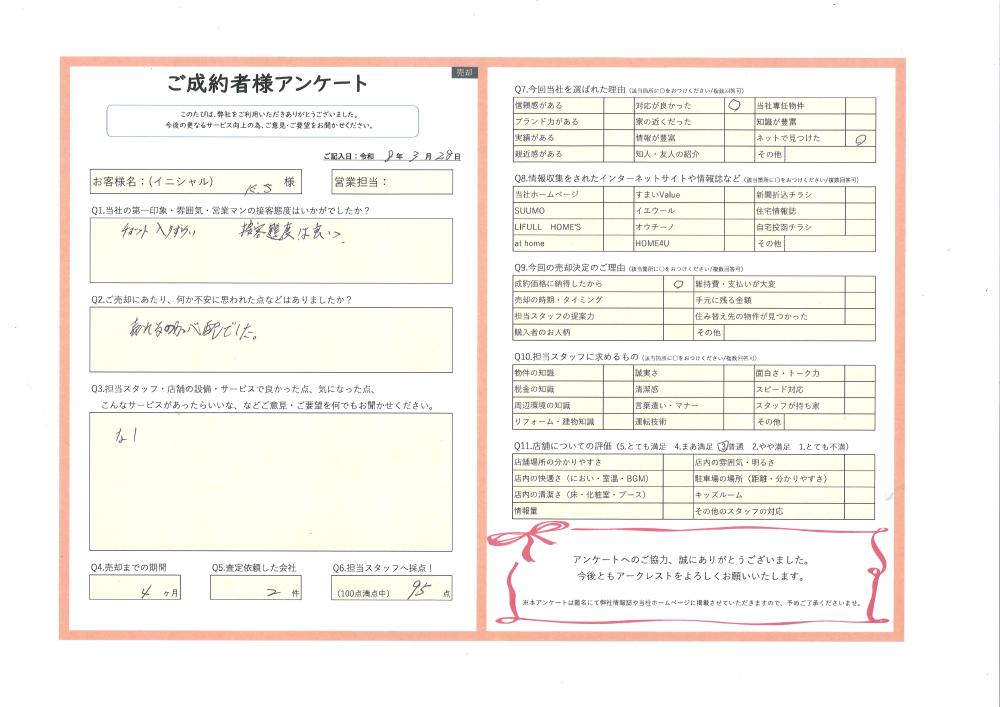 売却
ご成約者様アンケート
このたびは、弊社をご利用いただきありがとうございました。
今後の更なるサービス向上の為、ご意見・ご要望をお聞かせください。
ご記入日：令和 8 年 3 月 29 日
お客様名：(イニシャル) K.S 様
営業担当：
Q1.当社の第一印象・雰囲気・営業マンの接客態度はいかがでしたか？
チョット 入りずらい 接客態度は良い
Q2.ご売却にあたり、何か不安に思われた点などはありましたか？
売れるのか心配でした。
Q3.担当スタッフ・店舗の設備・サービスで良かった点、気になった点、
こんなサービスがあったらいいな、などご意見・ご要望を何でもお聞かせください。
なし
Q4.売却までの期間
4 ヶ月
Q5.査定依頼した会社
2 件
Q6.担当スタッフへ採点！
(100点満点中) 95 点
Q7.今回当社を選ばれた理由（該当箇所に○をおつけください/複数回答可）
信頼感がある 対応が良かった ○ 当社専任物件
ブランド力がある 家の近くだった 知識が豊富
実績がある 情報が豊富 ネットで見つけた ○
親近感がある 知人・友人の紹介 その他
Q8.情報収集をされたインターネットサイトや情報誌など（該当箇所に○をおつけください/複数回答可）
当社ホームページ すまいValue 新聞折込チラシ
SUUMO イエウール 住宅情報誌
LIFULL HOME'S オウチーノ 自宅投函チラシ
at home HOME4U その他
Q9.今回の売却決定のご理由（該当箇所に○をおつけください/複数回答可）
成約価格に納得したから ○ 維持費・支払いが大変
売却の時期・タイミング 手元に残る金額
担当スタッフの提案力 住み替え先の物件が見つかった
購入者のお人柄 その他
Q10.担当スタッフに求めるもの（該当箇所に○をおつけください/複数回答可）
物件の知識 誠実さ 面白さ・トーク力
税金の知識 清潔感 スピード対応
周辺環境の知識 言葉遣い・マナー スタッフが持ち家
リフォーム・建物知識 運転技術 その他
Q11.店舗についての評価（5.とても満足 4.まあ満足 3.普通 2.やや満足 1.とても不満）
店舗場所の分かりやすさ 店内の雰囲気・明るさ
店内の快適さ（におい・室温・BGM） 駐車場の場所（距離・分かりやすさ）
店内の清潔さ（床・化粧室・ブース） キッズルーム
情報量 その他のスタッフの対応
アンケートへのご協力、誠にありがとうございました。
今後ともアークレストをよろしくお願いいたします。
※本アンケートは匿名にて弊社情報誌や当社ホームページに掲載させていただきますので、予めご了承くださいませ。